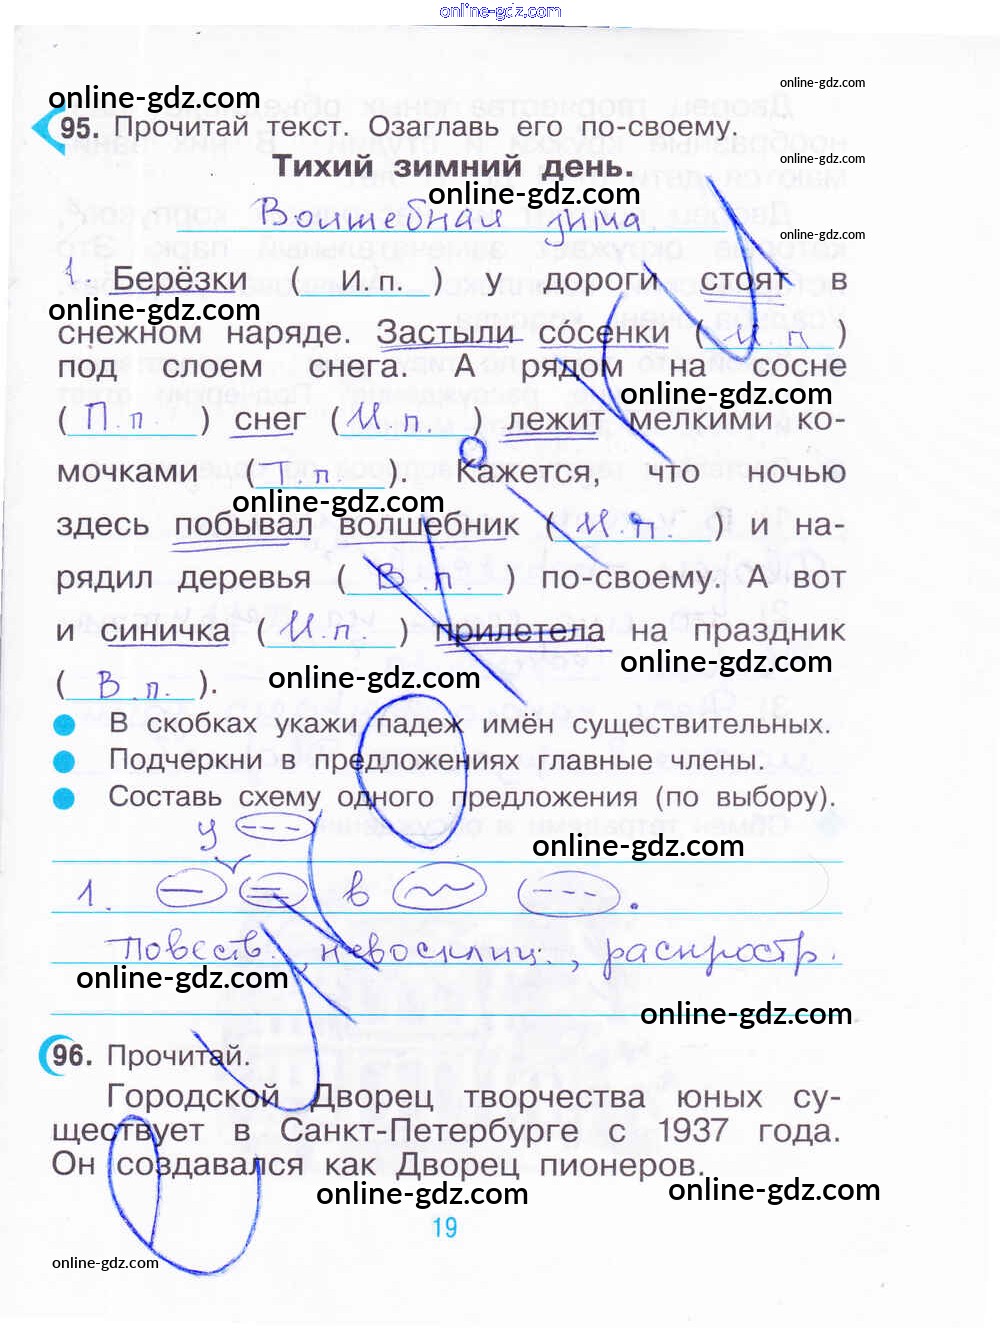 online-gdz.com
online-gdz.com
online-gdz.com
95. Прочитай текст. Озаглавь его по-своему.
online-gdz.com
Тихий зимний день.
online-gdz.com
Волшебная зима
online-gdz.com
1. Берёзки ( И.п. ) у дороги стоят в
online-gdz.com
снежном наряде. Застыли сосенки ( И.п )
под слоем снега. А рядом на сосне
online-gdz.com
( П.п ) снег ( И.п. ) лежит мелкими ко-
мочками ( Т.п. ). Кажется, что ночью
online-gdz.com
здесь побывал волшебник ( И.п. ) и на-
рядил деревья ( В.п. ) по-своему. А вот
и синичка ( И.п. ) прилетела на праздник
online-gdz.com
online-gdz.com
( В.п. ).
В скобках укажи падеж имён существительных.
Подчеркни в предложениях главные члены.
Составь схему одного предложения (по выбору).
у
online-gdz.com
1. в .
Повеств., невосклиц., распростр.
online-gdz.com
online-gdz.com
96. Прочитай.
Городской Дворец творчества юных су-
ществует в Санкт-Петербурге с 1937 года.
Он создавался как Дворец пионеров.
online-gdz.com
online-gdz.com
19
online-gdz.com